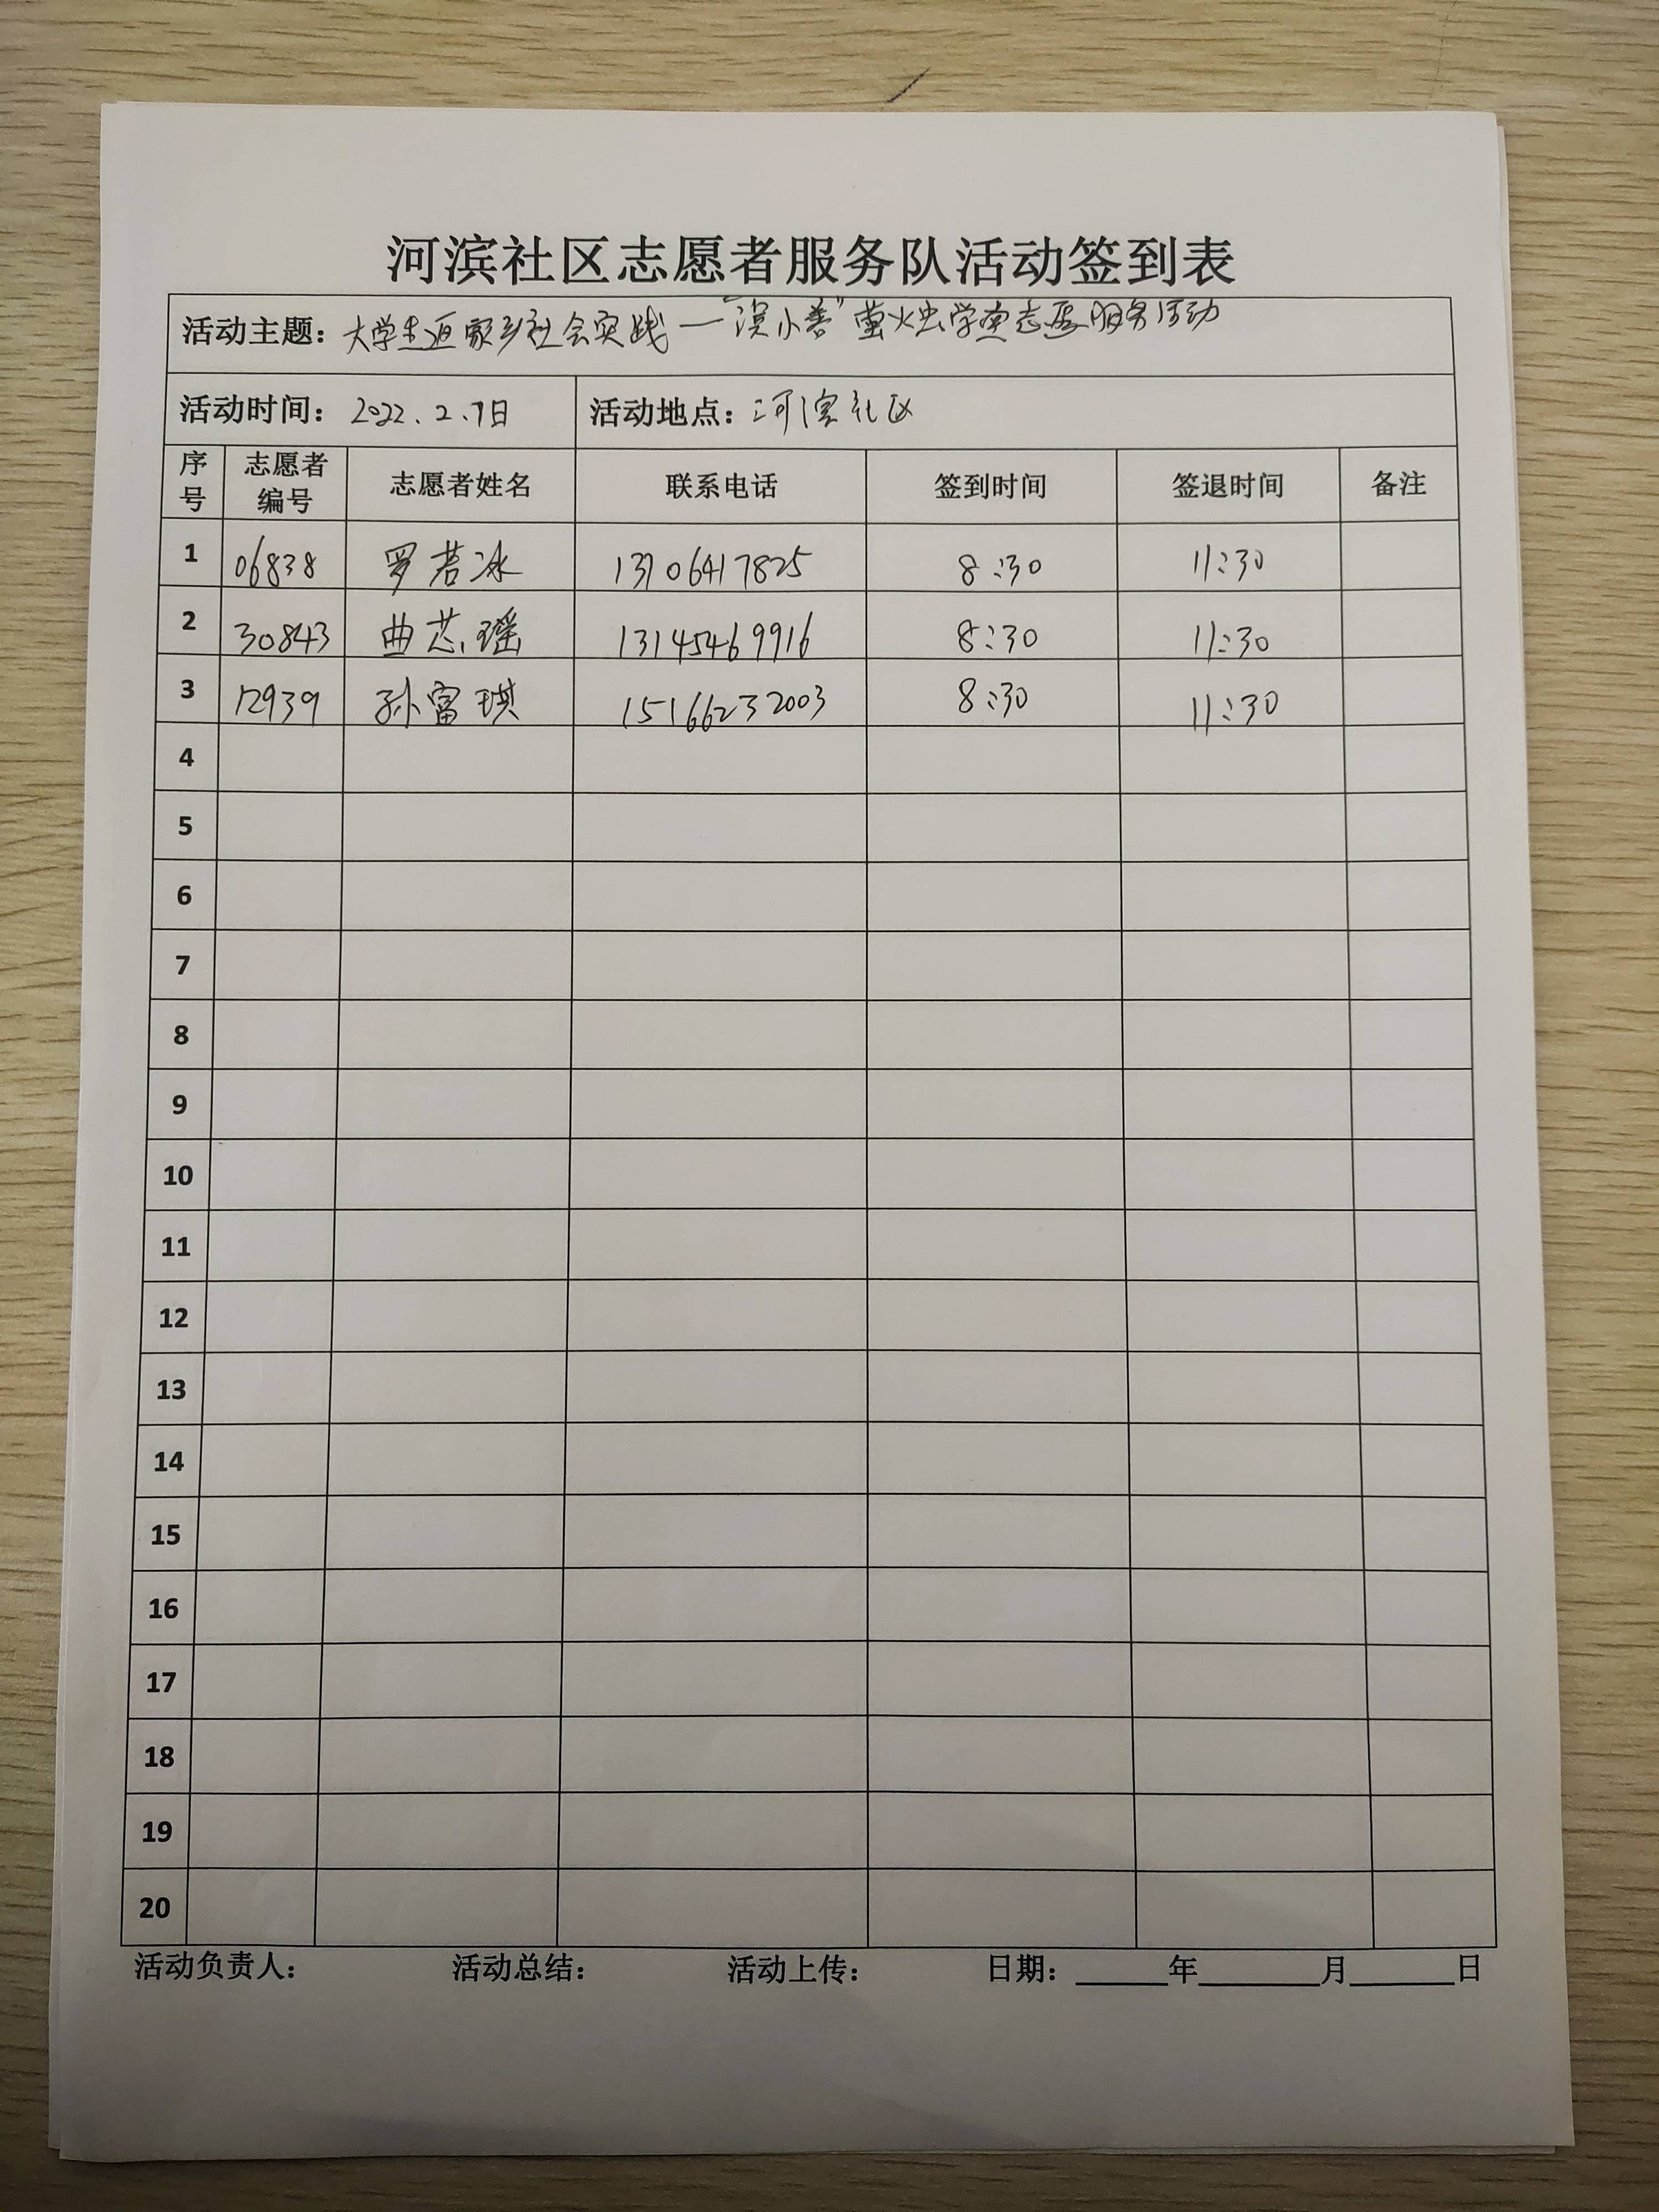 河滨社区志愿者服务队活动签到表
活动主题：大学生返家乡社会实践—“滨小善”萤火虫学堂志愿服务活动
活动时间：2022.2.7日 活动地点：河滨社区
序号 志愿者编号 志愿者姓名 联系电话 签到时间 签退时间 备注
1 06838 罗若冰 13706417825 8:30 11:30
2 30843 曲芯瑶 13145469916 8:30 11:30
3 12939 孙富琪 15166232003 8:30 11:30
4
5
6
7
8
9
10
11
12
13
14
15
16
17
18
19
20
活动负责人： 活动总结： 活动上传： 日期：______年______月______日